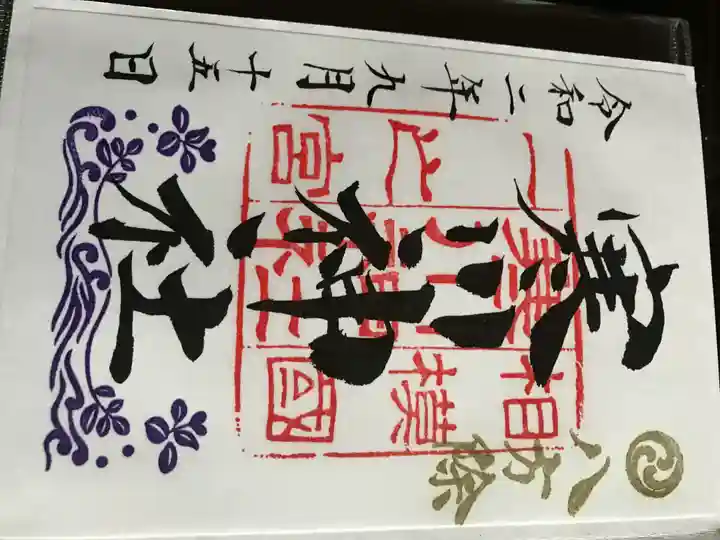 八方除
相模國
寒川神社
一之宮
寒川神社
令和二年九月十五日